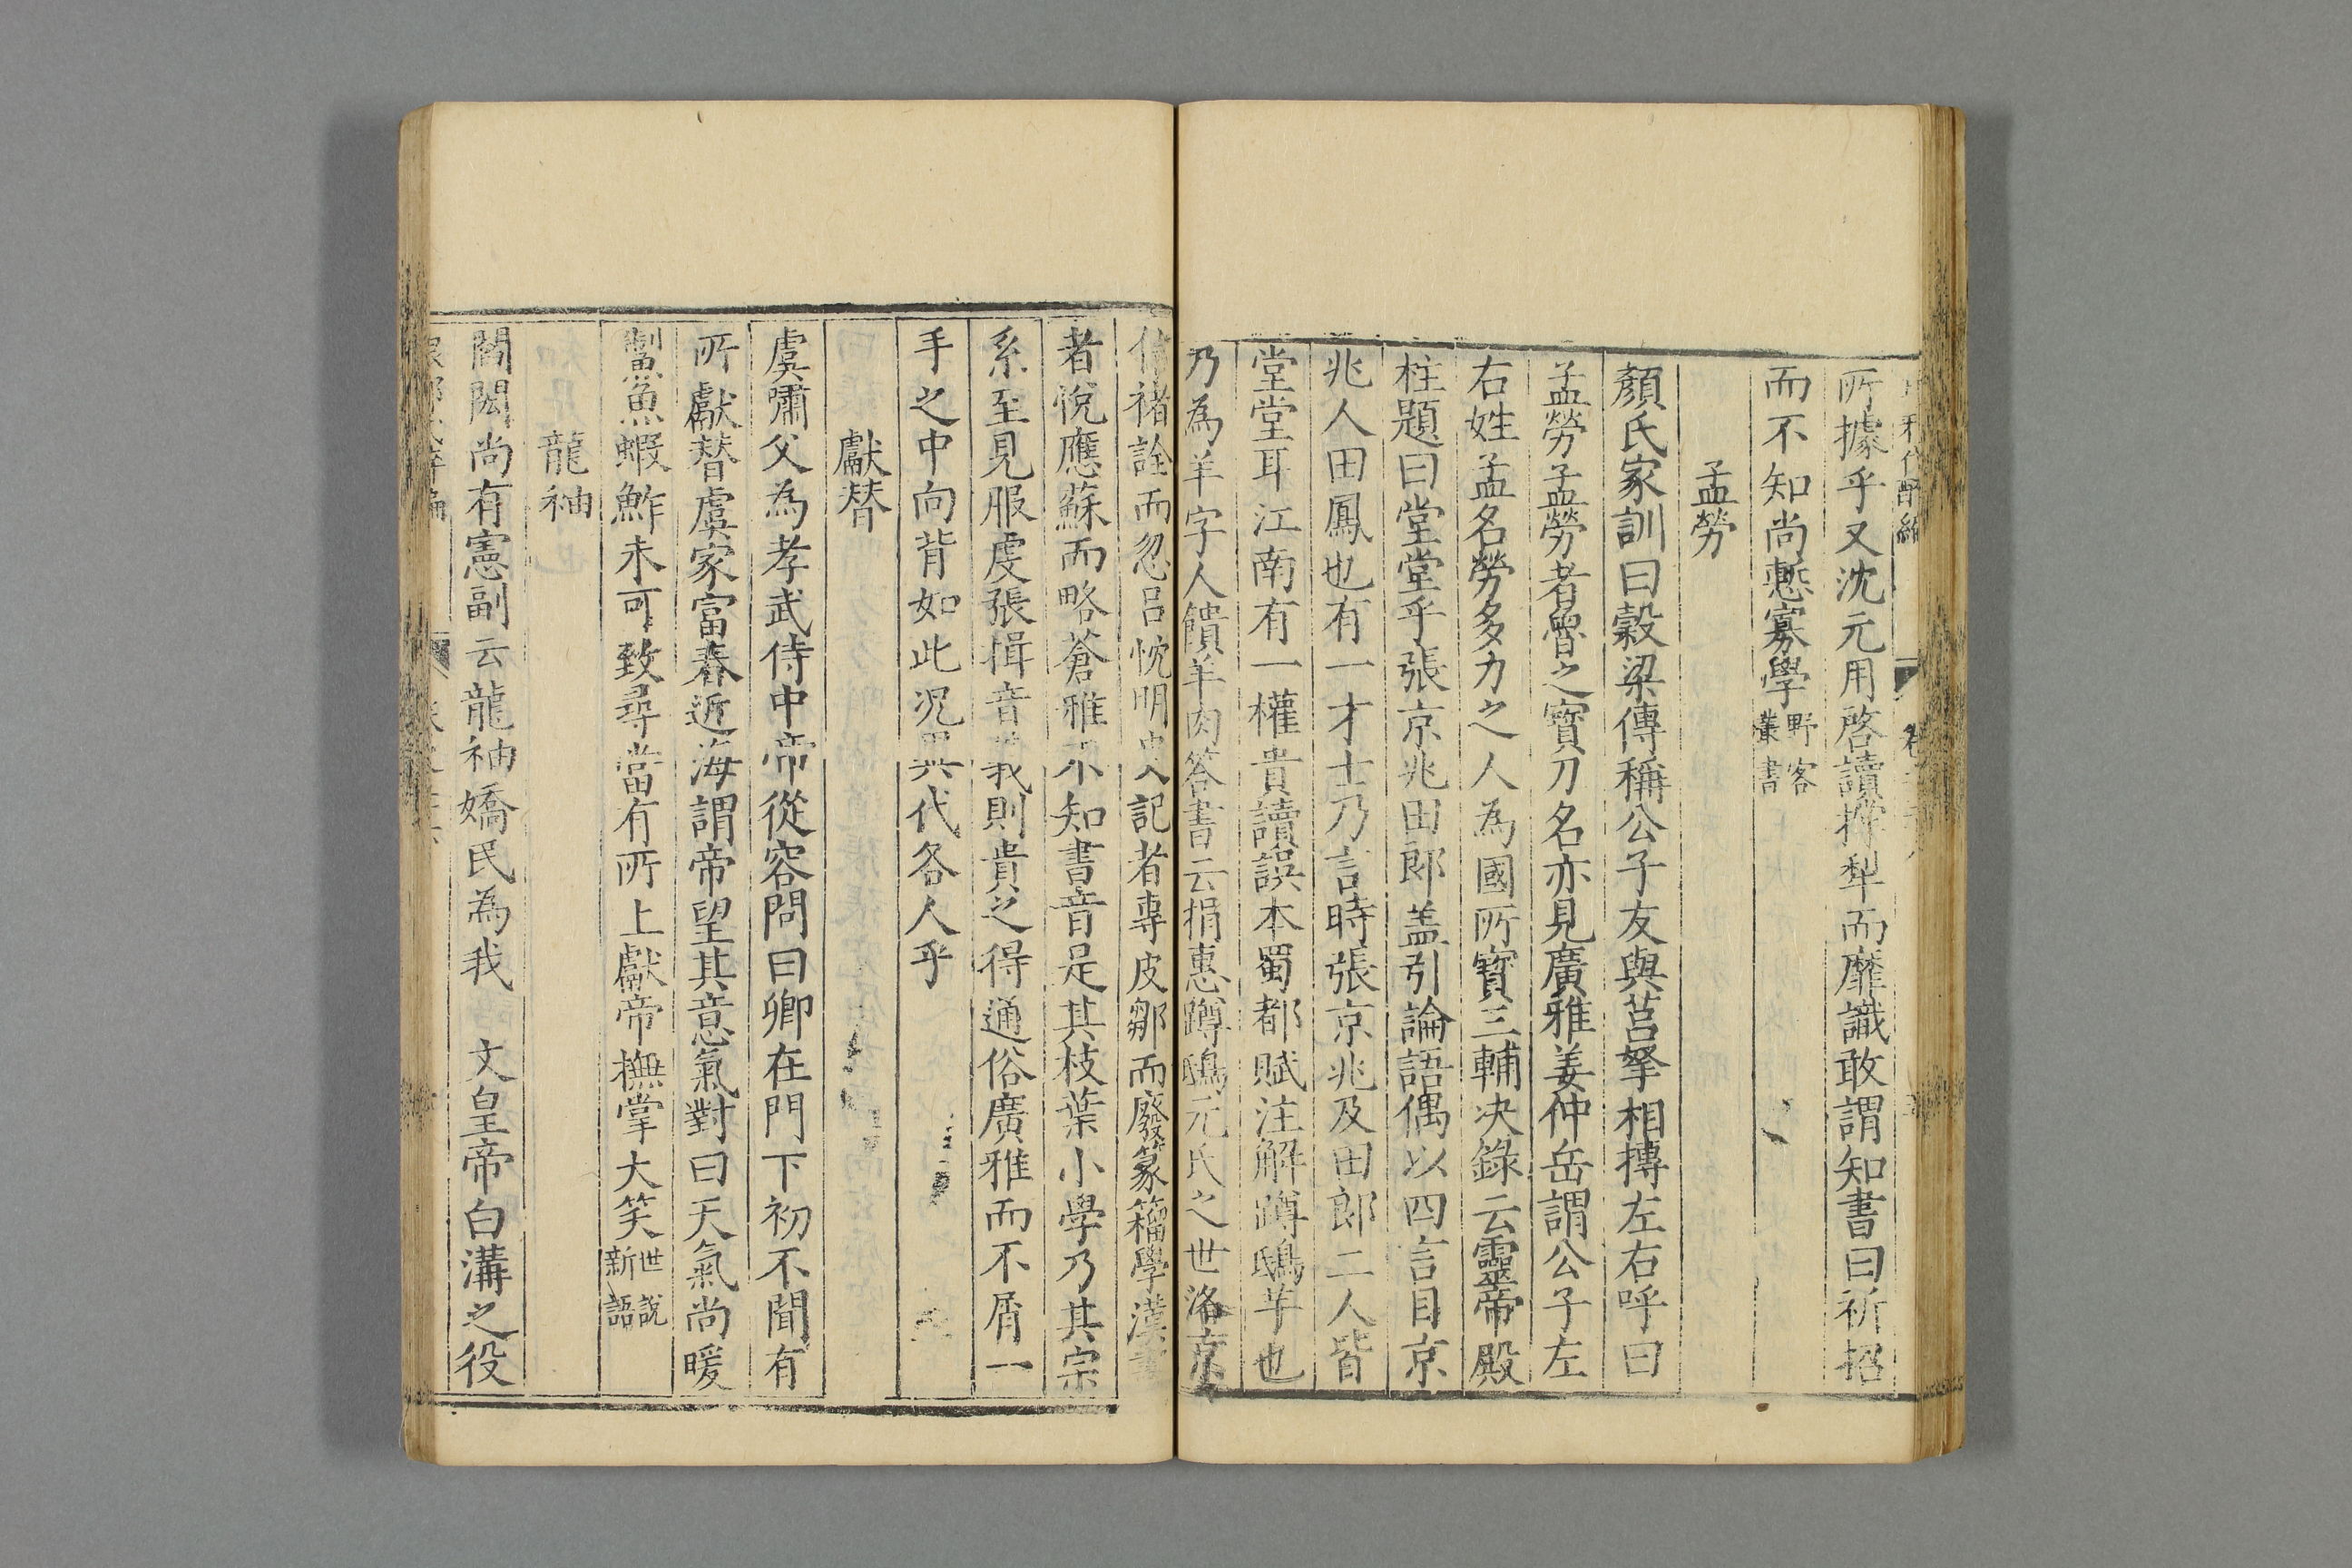 所據乎又沈元用啓讀㩉犁而靡識敢謂知書曰祈招
而不知尚慙寡學野客叢書
孟勞
顏氏家訓曰穀梁傳稱公子友與莒挐相摶左右呼曰
孟勞孟勞者魯之寶刀名亦見廣雅姜仲岳謂公子左
右姓孟名勞多力之人為國所寳三輔决錄云靈帝殿
柱題曰堂堂乎張京兆田郎盖引論語偶以四言目京
兆人田鳳也有一才士乃言時張京兆及田郎二人皆
堂堂耳江南有一權貴讀誤本蜀都賦注解蹲鴟芋也
乃為羊字人饋羊肉答書云捐惠蹲鴟元氏之世洛京
褚詮而忽呂忱明史記者專皮鄒而廢篆籀學漢書
者悅應蘇而略蒼雅不知書音是其枝葉小學乃其宗
系至見服虔張揖音義則貴之得通俗廣雅而不屑一
手之中向背如此况異代各人乎
獻替
虞嘯父為孝武侍中帝從容問曰卿在門下初不聞有
所獻替虞家富春近海謂帝望其意氣對曰天氣尚暖
䱥魚蝦鮓未可致尋當有所上獻帝撫掌大笑世說新語
龍袖
閣閎尚有憲副云龍袖嬌民為我 文皇帝白溝之役